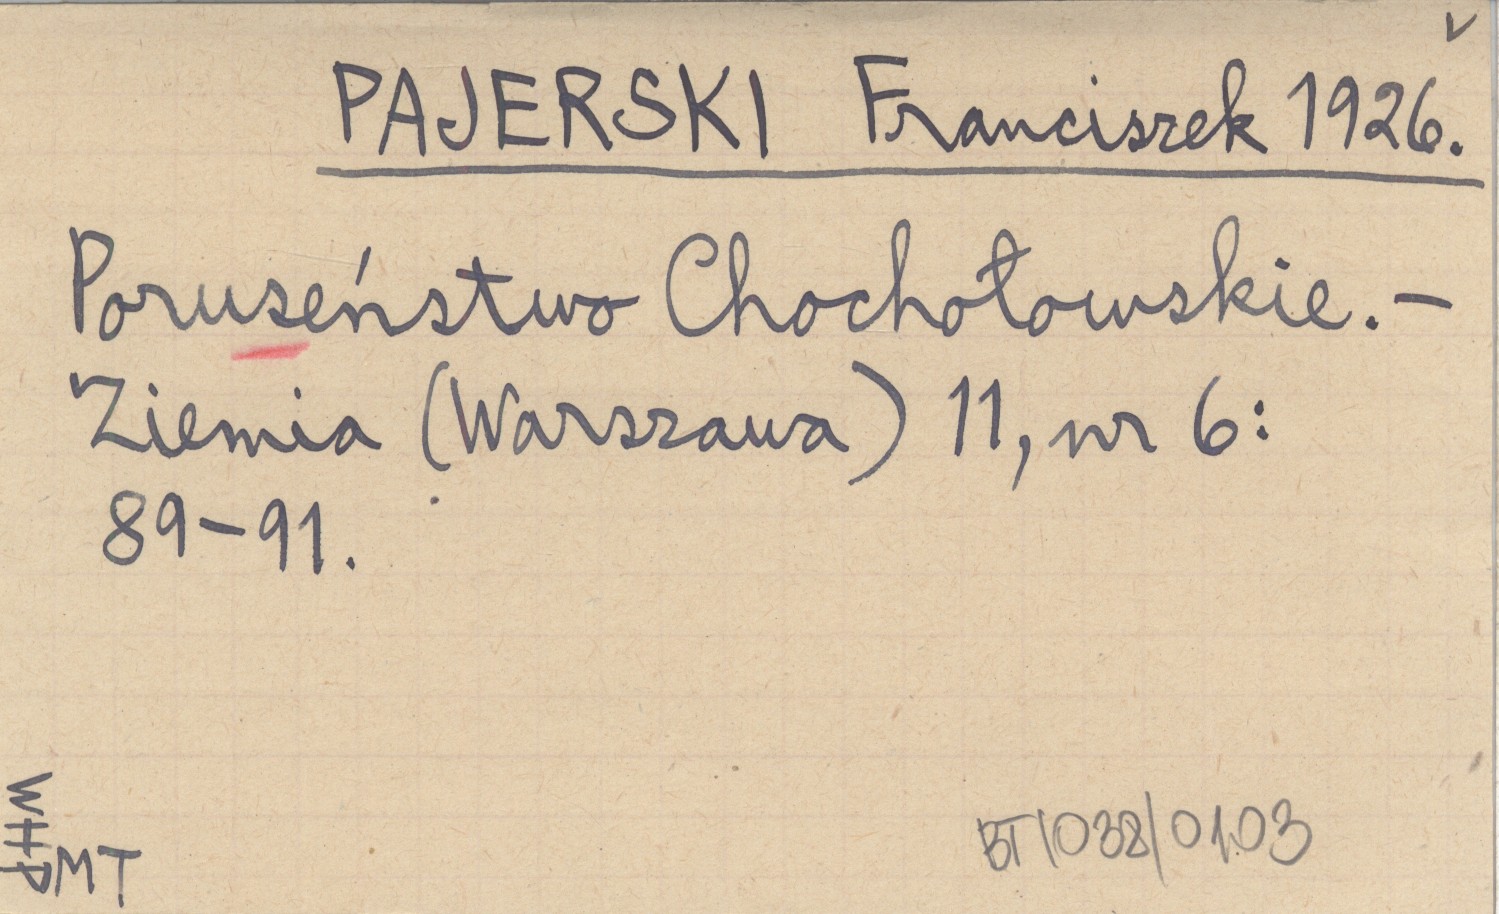 v
PAJERSKI Franciszek 1926.
Poruseństwo Chochołowskie. –
Ziemia (Warszawa) 11, nr 6:
89–91.
WHP
MT
BT/038/0103